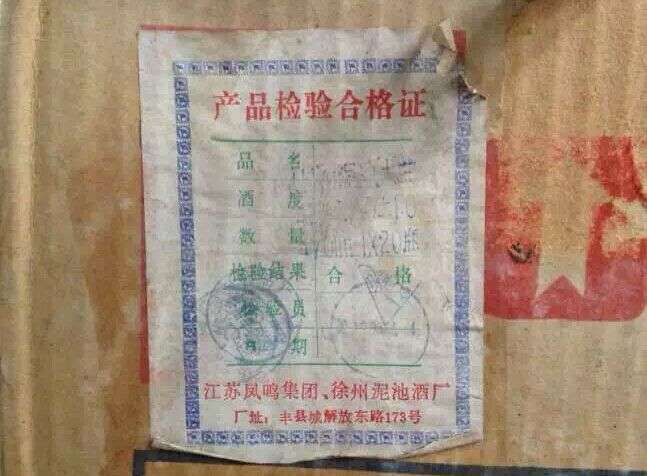 产品检验合格证
品名
酒度
数量
检验结果 合格
检验员
日期
江苏凤鸣集团、徐州泥池酒厂
厂址：丰县城解放东路173号